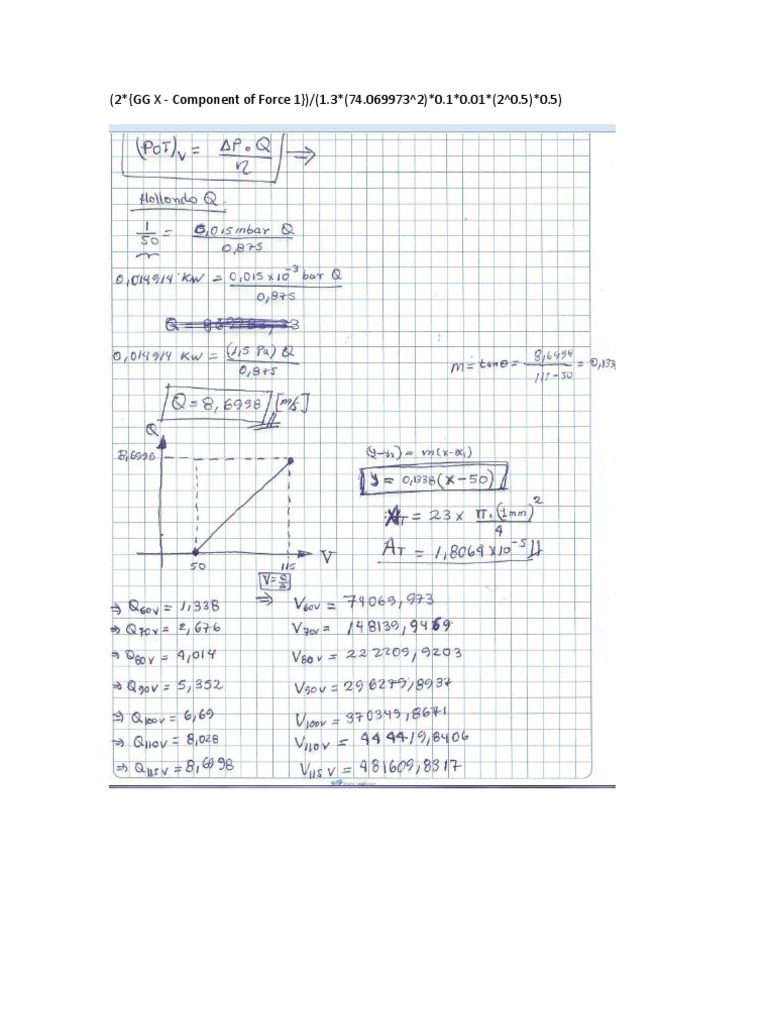 (2*{GG X - Component of Force 1})/(1.3*(74.069973^2)*0.1*0.01*(2^0.5)*0.5)
(POT)v = ΔP.Q / η ⇒
Hollando Q
1/50 = 0,015 mbar Q / 0,875
0,014914 KW = 0,015 x 10^-3 bar Q / 0,875
0,014914 KW = (1,5 Pa) Q / 0,875
m = tanθ = 8,6998 / 115-50 = 0,133
Q = 8,6998 [m/s]
Q
8,6998
(y-y1) = m(x-x1)
y = 0,1338(x-50)
AT = 23 x π.(1mm)^2 / 4
AT = 1,8064 x 10^-5 //
50 115 V
V = Q/A
⇒ Q60V = 1,338 ⇒ V60V = 74069,973
⇒ Q70V = 2,676 V70V = 148139,9469
⇒ Q80V = 4,014 V80V = 222209,9203
⇒ Q90V = 5,352 V90V = 296279,8937
⇒ Q100V = 6,69 V100V = 370349,8671
⇒ Q110V = 8,028 V110V = 444419,8406
⇒ Q115V = 8,6998 V115V = 481609,8317